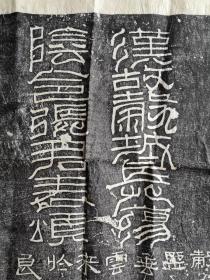 漢故穀城長蕩
陰令張君表頌
雲
來
良